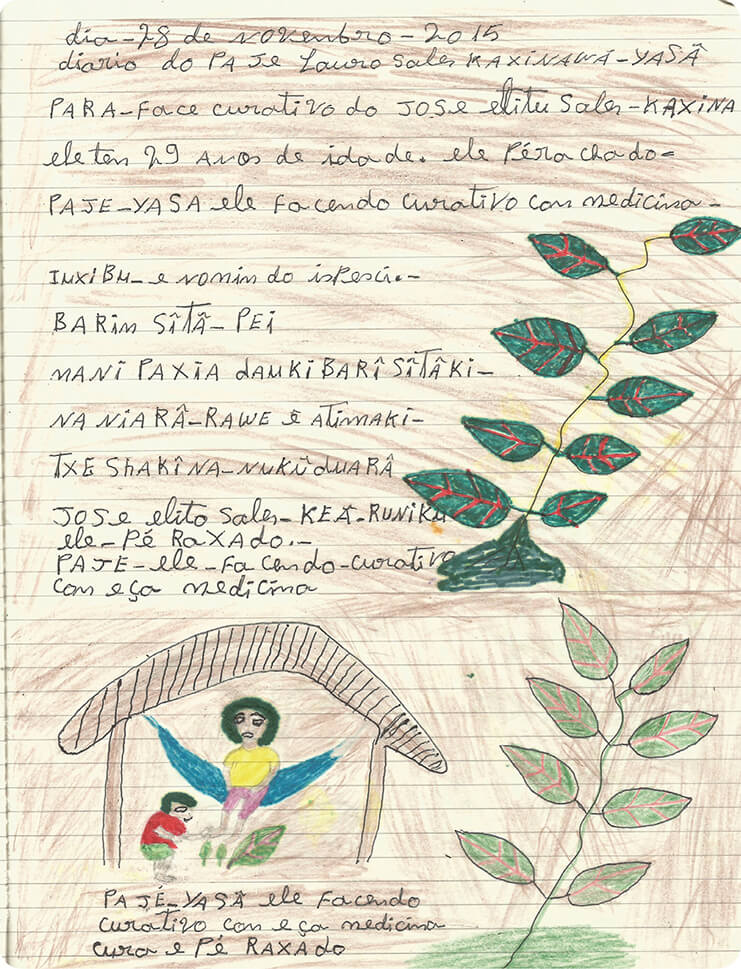 dia-28 de novenbro-2015
diario do PAJE Lauro Sales KAXINAWÁ-YASÂ
PARA-face curativo do JOSE elitu Sales-KAXINA
ele ten 29 ANOS de idade. ele Pé rachado-
PAJE-YASA ele facendo curativo con medicina-
INXIBU-e nomin do ispesci.-
BARIM SÎTÂ-PEI
MANI PAXIA dAUKI BARÎ SÎTÂKI-
NA NIARÂ-RAWE Ê ATIMAKI-
TXE SHAKÎNA-NUKÛ DUARÂ
JOSE elito Sales-KEÃ-RUNIKU
ele-Pé RAXADO.-
PAJE-ele-facendo-curativo
con eça medicina
PAJÉ-YASÂ ele facendo
curativo con eça medicina
cura e Pé RAXADO